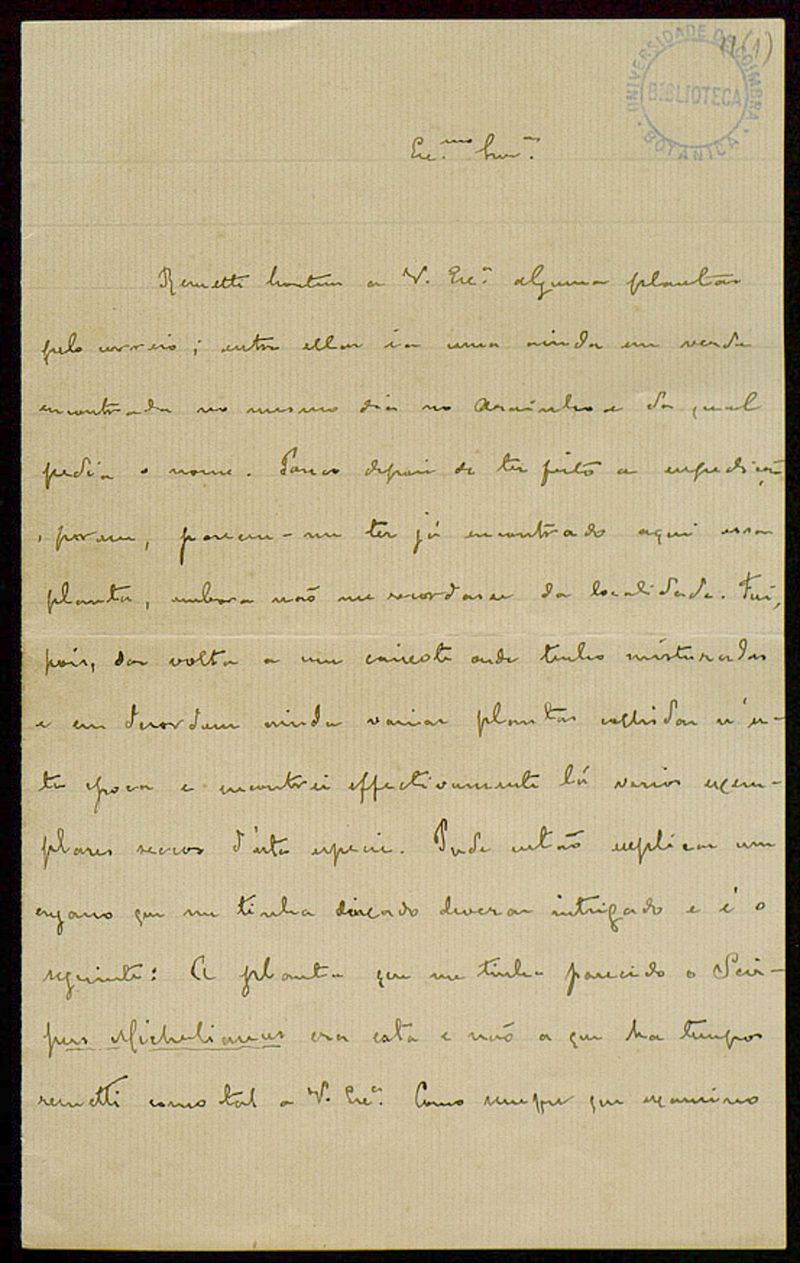 11(1)
UNIVERSIDADE DE COIMBRA
BIBLIOTECA
BOTANICA
Exc.mo Snr.
Remetti hontem a V. Exc.a algumas plantas
pelo correio; entre ellas ia uma ainda em verde
encontrada no mesmo dia no Arainho e da qual
pedia o nome. Pouco depois de ter feito a expedição
, porem, pareceu-me ter já encontrado aqui essa
planta, embora não me recordasse da localidade. Fui,
pois, dar volta a um caixote onde tenho misturadas
e em desordem ainda varias plantas colhidas n'es-
ta epoca e encontrei effectivamente lá varios exem-
plares seccos d'esta especie. Pude então explicar um
engano que me tinha deixado deveras intrigado e é o
seguinte: A planta que me tinha parecido o Scir-
pus Michelianus era esta e não a que ha tempos
remetti como tal a V. Exc.a Como sempre que examino